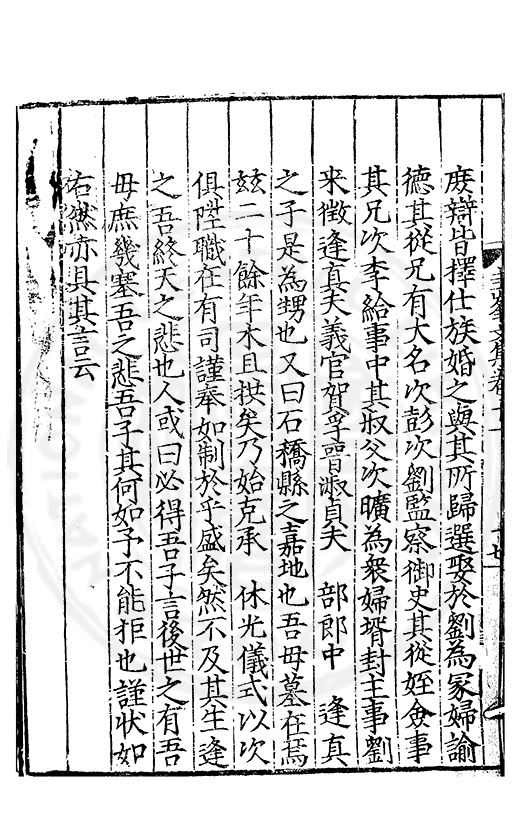 庋辯皆擇仕族婚之與其所歸選娶於劉為冡婦諭
德其從兄有大名次彭次劉監察御史其從姪僉事
其兄次李給事中其叔父次曠為衆婦壻封主事劉
来徵逢真夫義官賀孚晋淑貞夫　部郎中　逢真
之子是為甥也又曰石橋縣之嘉地也吾母墓在焉
兹二十餘年木且拱矣乃始克承　休光儀式以次
俱陞職在有司謹舉如制於乎盛矣然不及其生逢
之吾終天之悲也人或曰必得吾子言後世之有吾
母庶幾塞吾之悲吾子其何如予不能拒也謹狀如
右然亦具其言云
文集卷